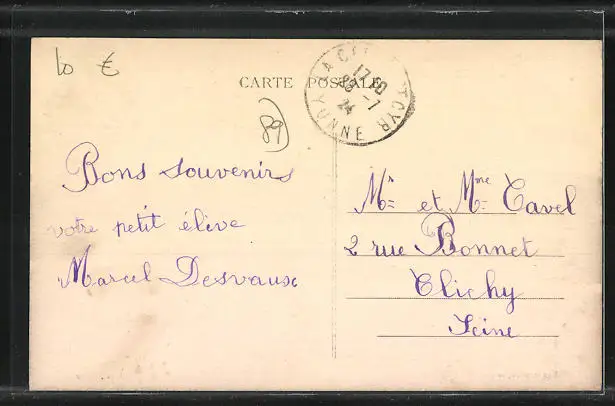 10 €
CARTE POSTALE
17 30
24
YONNE
89
Bons souvenirs
votre petit élève
Marcel Desvaux
Mr et Mme Cavel
2 rue Bonnet
Clichy
Seine